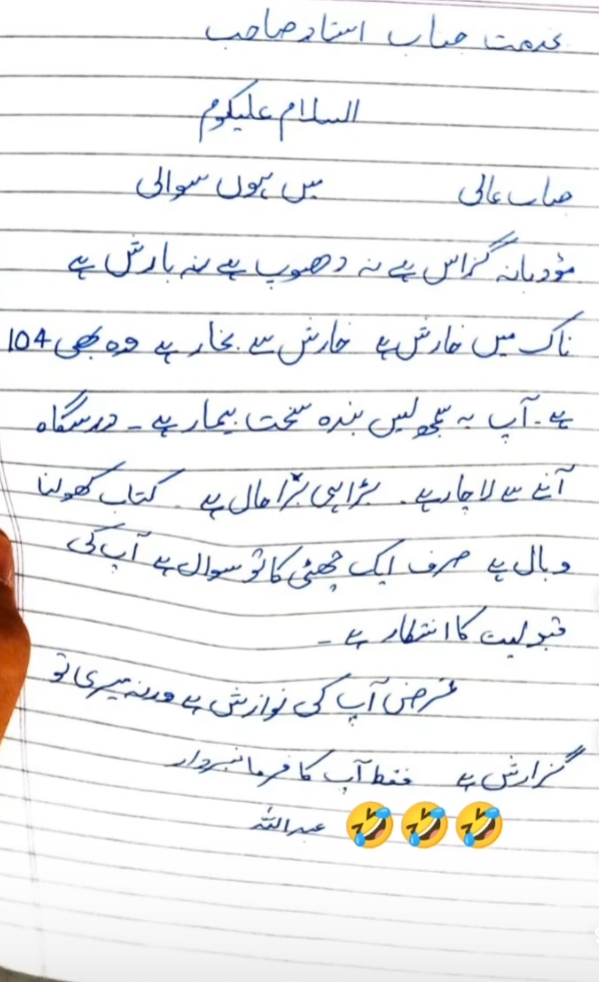 بخدمت جناب استاد صاحب
السلام علیکوم
جناب عالی میں ہوں سوالی
مؤدبانہ گزاس ہے نہ دھوپ ہے نہ بارش ہے
ناک میں خارش ہے خارش سے بخار ہے وہ بھی 104
ہے۔ آپ یہ سمجھ لیں بندہ سخت بیمار ہے ۔ درسگاہ
آنے سے لاچار ہے ۔ بڑا ہی بُرا حال ہے ۔ کتاب کھولنا
وبال ہے صرف ایک چھٹی کا تو سوال ہے آپ کی
قبولیت کا انتظار ہے ۔
غرض آپ کی نوازش ہے ورنہ میری تو
گزارش ہے فقط آپ کا فرمانبردار
عبداللہ 🤣🤣🤣